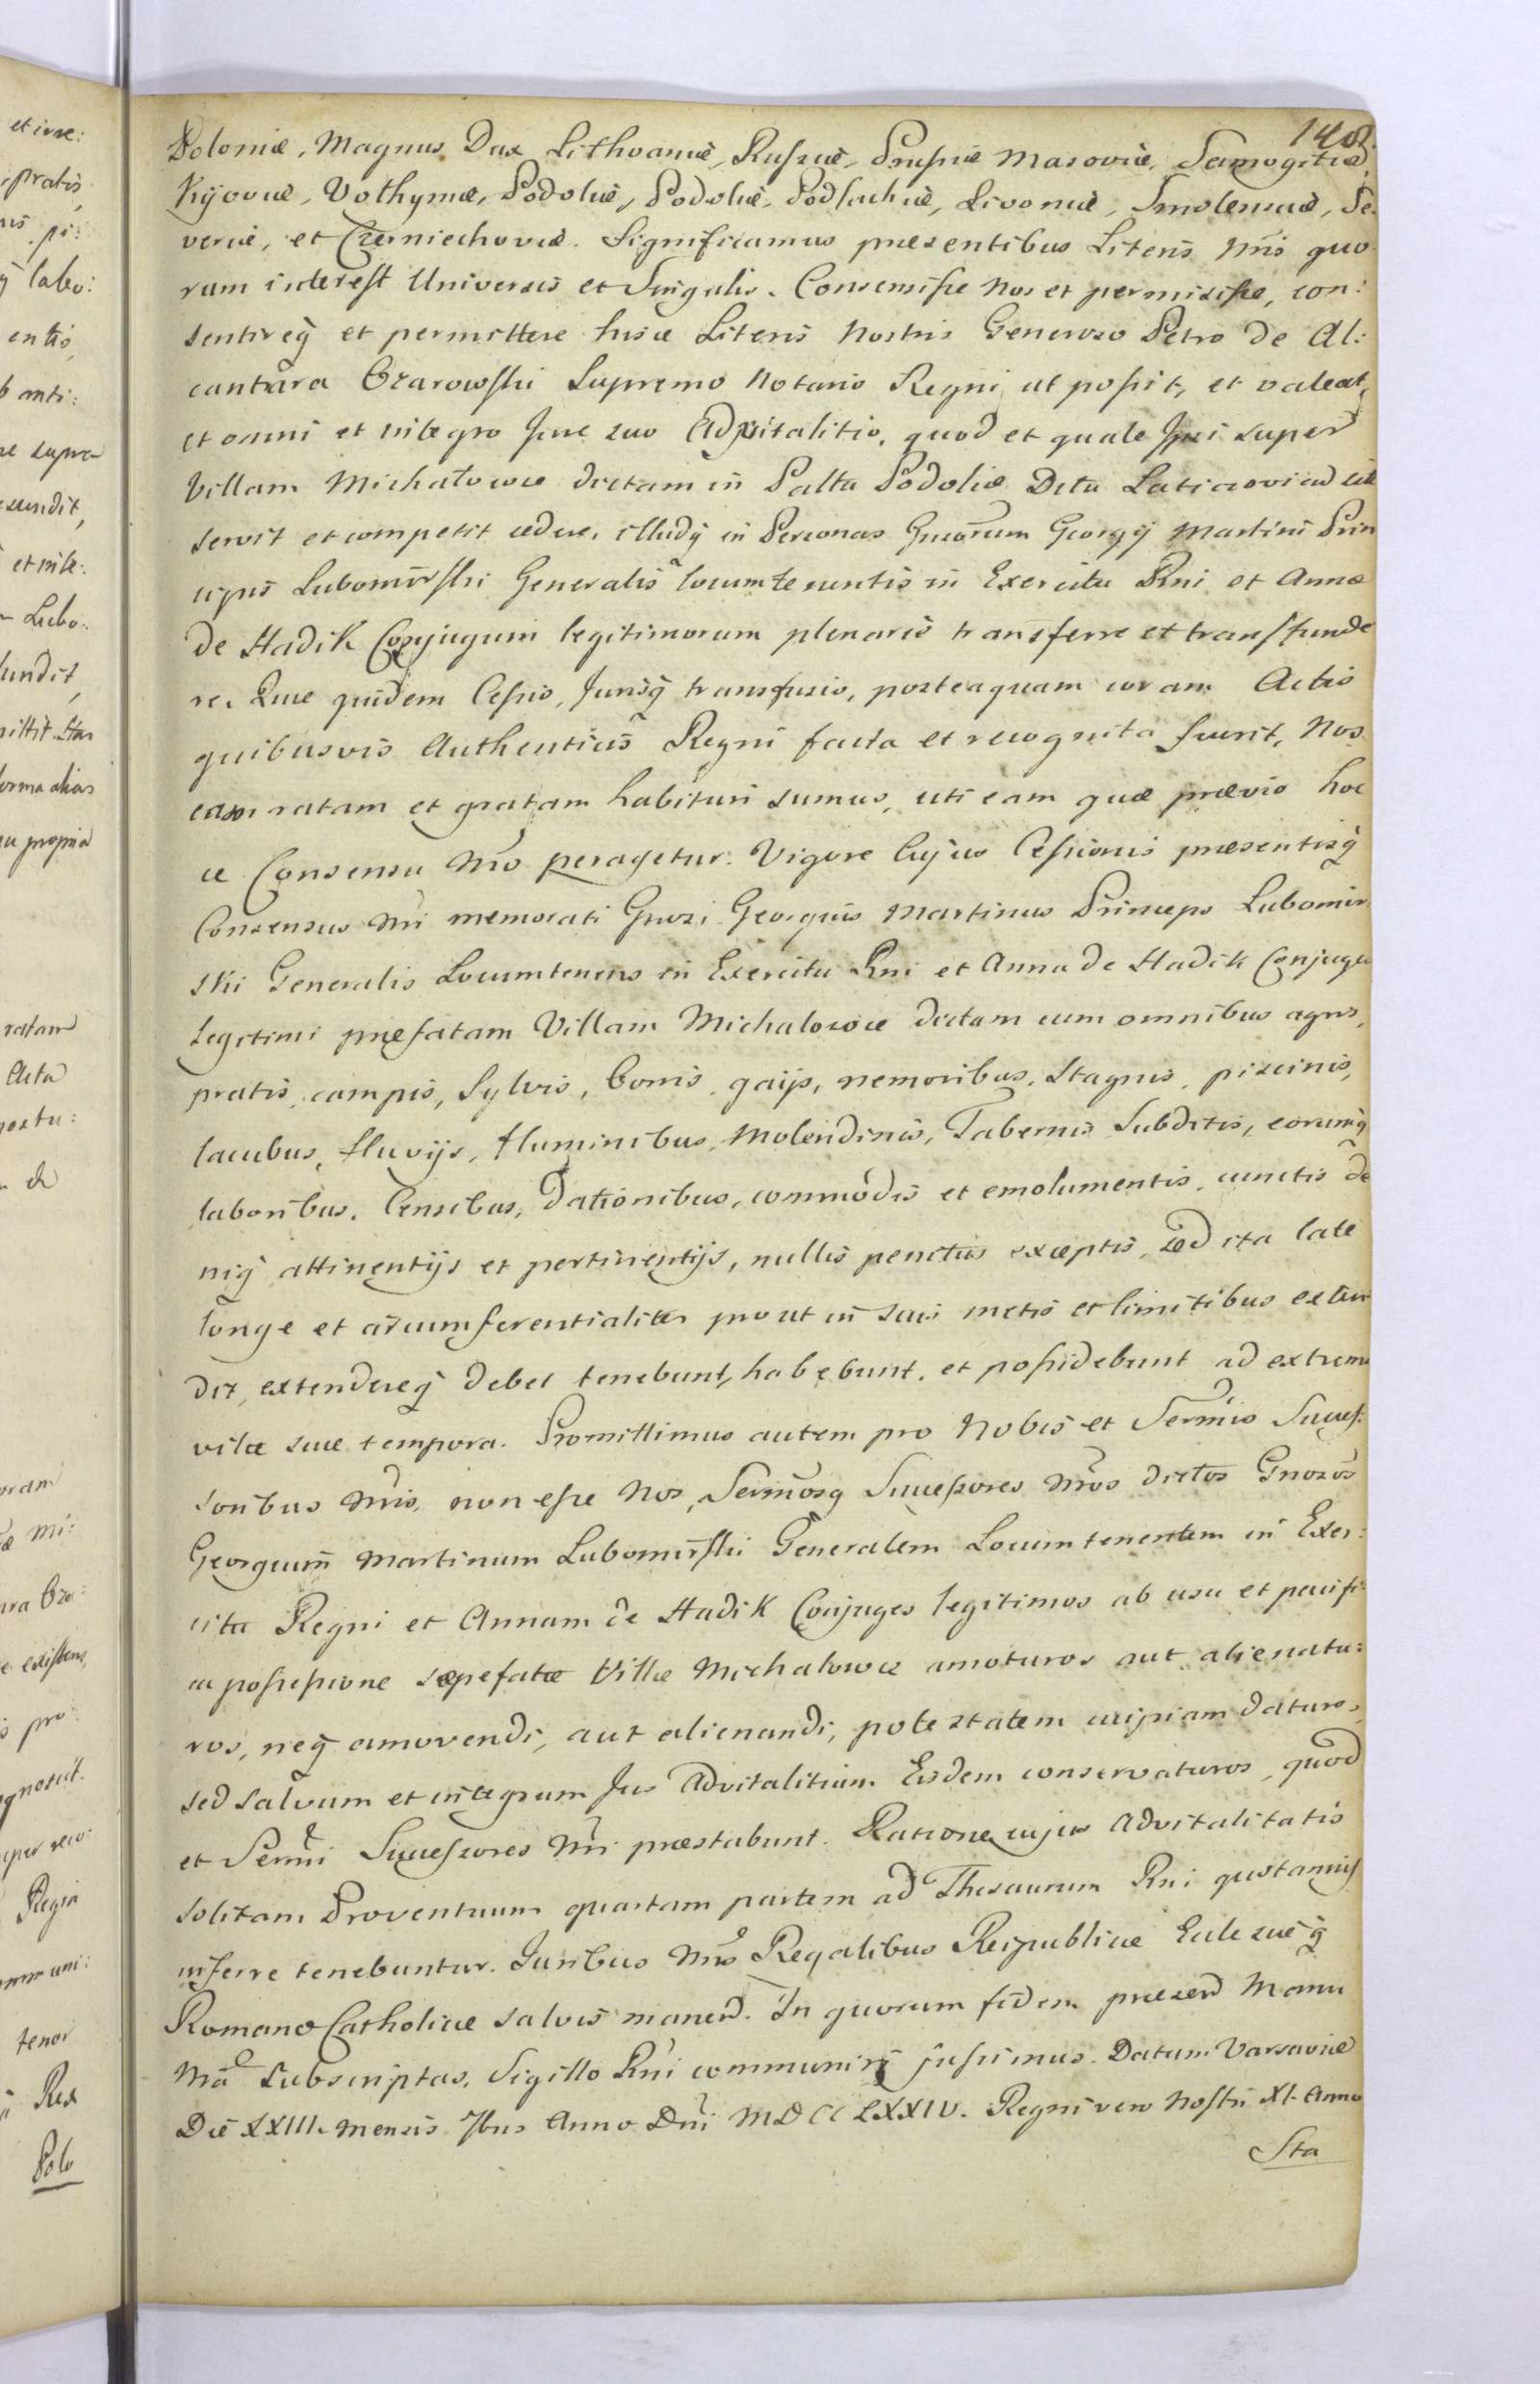 1401.
Poloniæ, Magnus Dux Lithvaniæ, Russiæ, Prussiæ Masoviæ, Samogitiæ,
Kÿoviæ, Volhyniæ, Podoliæ, Podoliæ, Podlachiæ, Livoniæ, Smolensciæ, Se
veriæ, et Czerniechoviæ. Significamus præsentibus Literis Nris quo
rum interest Universis et Singulis. Consensisse Nos et permisisse, con:
sentireq̃ et permittere hisce Literis Nostris Generoso Petro de Al:
cantara Ozarowski Supremo Notario Regni ut possit, et valeat,
et omni et integro Jure suo Advitalitio, quod et quale Ipsi super
Villam Michałowce dictam in Paltu Podoliæ Dctu Laticzovien
servit et competit cedere, illudq̃ in Personas Gnrorum Georgij Martini Prin
cipis Lubomirski Generalis locumtenentis in Exercitu Rni et Annæ
de Hadik Conjugum legitimorum plenarie transferre et transfunde
re. Quæ quidem Cessio, Jurisq̃ transfusio, posteaquam coram Actis
quibusvis Authenticis Regni facta et recognita fuerit, Nos
eam ratam et gratam habituri sumus, uti eam quæ prævio hoc
ce Consensu Nro peragetur. Vigore Cujus Cessionis præsentisq̃
Consensus Nri memorati Gnrosi Georgius Martinus Princeps Lubomir
ski Generalis Locumtenens in Exercitu Rni et Anna de Hadik Conjuges
Legitimi præfatam Villam Michalowce dictam cum omnibus agris,
pratis, campis, Sylvis, boris, gaijs, nemoribus, Stagnis, piscinis,
lacubus, fluvijs, fluminibus, Molendinis, Tabernis Subditis, eorumq̃
laboribus, Censibus, Dationibus, commodis et emolumentis, cunctis de
niq̃ attinentijs et pertinentijs, nullis penitus exceptis, sed ita late
longe et circumferentialiter prout in suis metis et limitibus exten
dit, extendereq̃ debet tenebunt, habebunt, et possidebunt ad extrema
vitæ suæ tempora. Promittimus autem pro Nobis et Sermis Success:
soribus Nris, non esse Nos, Sermosq̃ Successores Nros dictos Gnrosos
Georgium Martinum Lubomirski Generalem Locumtenentem in Exer:
citu Regni et Annam de Hadik Conjuges legitimos ab usu et pacifi:
ca possessione sæpefatæ Villæ Michalowce amoturos aut alienatu:
ros, neq̃ amovendi, aut alienandi, potestatem cuipiam daturos,
sed salvum et integrum Jus Advitalitium Eisdem conservaturos, quod
et Sermi Successores Nri præstabunt. Ratione cujus Advitalitatis
solitam Proventuum quartam partem ad Thesaurum Rni quotannis
inferre tenebuntur. Juribus Nris Regalibus Reipublicæ Eclesiæq̃
Romano Catholicæ salvis manend. In quorum fidem præsend Manu
Nra Subscriptas, Sigillo Rni communiri jussimus. Datum Varsaviæ
Die XXIII. Mensis 7bris Anno Dni MDCCLXXIV. Regni vero Nostri XI. Anno
Sta
et iure:
pratis
pi:
labo:
entis
anti:
supra
sundit,
et inte:
Lubo:
fundit,
mittit
forma alias
propria
ratam
Acta
de
Mi:
existens,
pro:
Regia
tenor
Rex
Polo